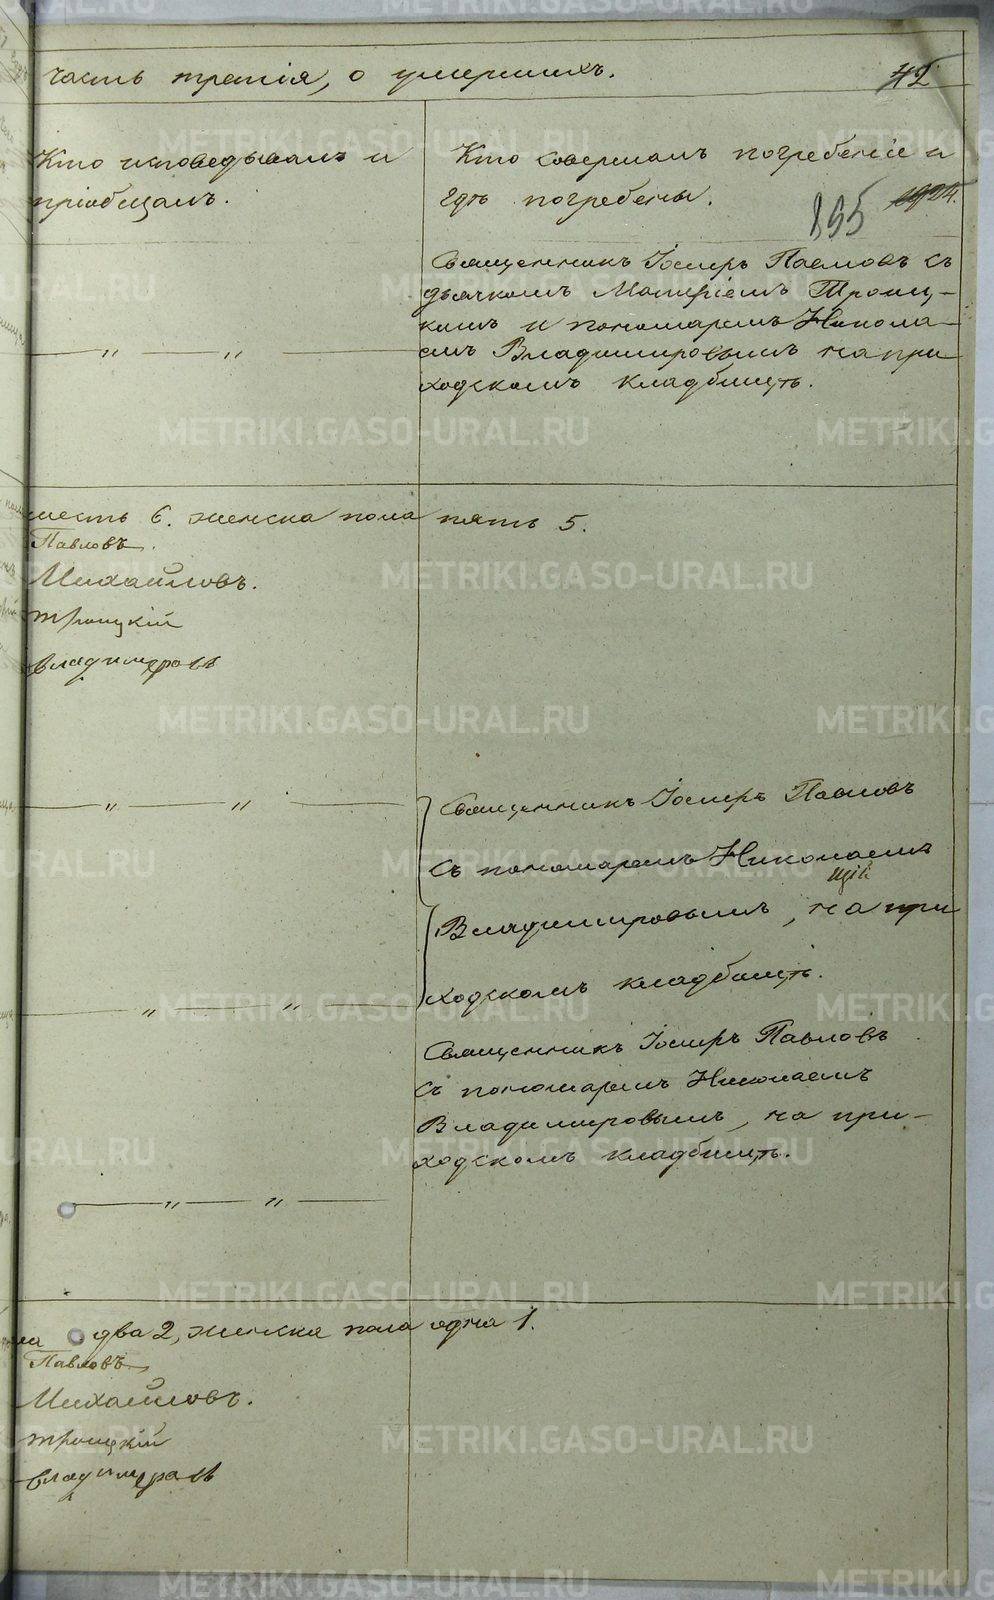 часть третія, о умершихъ.
42
Кто исповедывалъ и
пріобщалъ.
Кто совершалъ погребеніе и
гдѣ погребены.
895
Священникъ Іосифъ Павловъ съ
дьячкомъ Матфіемъ Троиц-
кимъ и пономаремъ Никола-
емъ Владимировымъ на при
ходскомъ кладбищѣ.
— " — " —
шесть 6. женска пола пять 5.
Павловъ.
Михайловъ.
Троицкій
Владимировъ
— " — " —
Священникъ Іосифъ Павловъ
съ пономаремъ Николаемъ
щій
Владимировымъ, на при
ходскомъ кладбищѣ.
— " — " —
Священникъ Іосифъ Павловъ
съ пономаремъ Николаемъ
Владимировымъ, на при-
ходскомъ кладбищѣ.
— " — " —
два 2, женска пола одна 1.
Павловъ
Михайловъ.
Троицкій
Владимировъ
METRIKI.GASO-URAL.RU